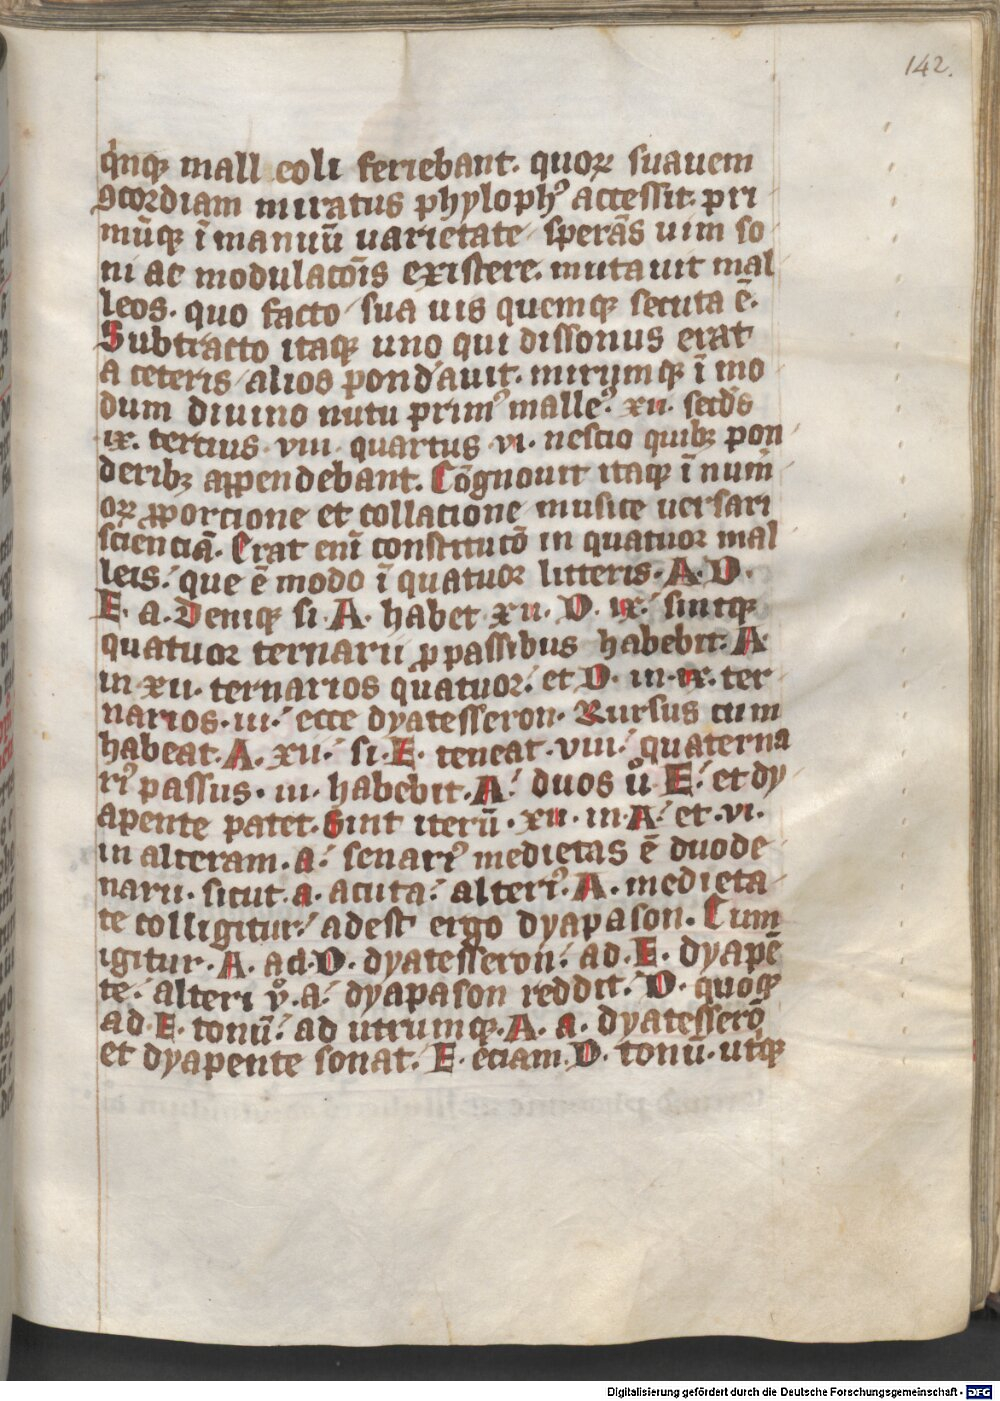 142.
q̇nqꝫ mall eoli feriebant. quoꝝ suauem
ꝯcordiam miratus phyloph⁹ accessit. pri
mūqꝫ ī manuū uarietate sperās uim so
ni ac modulacōis existere. mutauit mal
leos. quo facto sua uis quemqꝫ secuta ē.
Subtracto itaqꝫ uno qui dissonus erat
a ceteris alios pond̕auit. mirumqꝫ ī mo
dum diuino nutu prim⁹ malle⁹. xii. secd̕s
ix. tertius. viii. quartus. vi. nescio quibꝫ pon
deribꝫ appendebant. Cōgnouit itaqꝫ ī num̕
oꝝ ꝓporcione et collacione musice uersari
scienciā. Erat eni̅ constitutō in quatuor mal
leis. que ē modo ī quatuor litteris. A. D.
E. a. Deniqꝫ si. A. habet xii. D. ix. sintqꝫ
quatuor ternarii ꝓ passibus habebit. A.
in xii. ternarios quatuor. et D. in. ix. ter
narios. iii. ecce dyatesseron. Rursus cum
habeat. A. xii. si. E. teneat. viii. quaterna
ri⁹ passus. iii. habebit. A. duos ů. E. et dy
apente patet. Sint iterū. xii. in. A. et. vi.
in alteram. a. senari⁹ medietas ē duode
narii. sicut. a. acuta. alteri⁹. A. medieta
te colligitur. adest ergo dyapason. Cum
igitur. A. ad. D. dyatesseron. ad. E. dyapē
te. alteri ṽ. a. dyapason reddit. D. quoqꝫ
ad. E. tonū. ad utrumqꝫ. A. a. dyatesserō
et dyapente sonat. E. eciam. D. tonū. utqꝫ
Digitalisierung gefördert durch die Deutsche Forschungsgemeinschaft - DFG